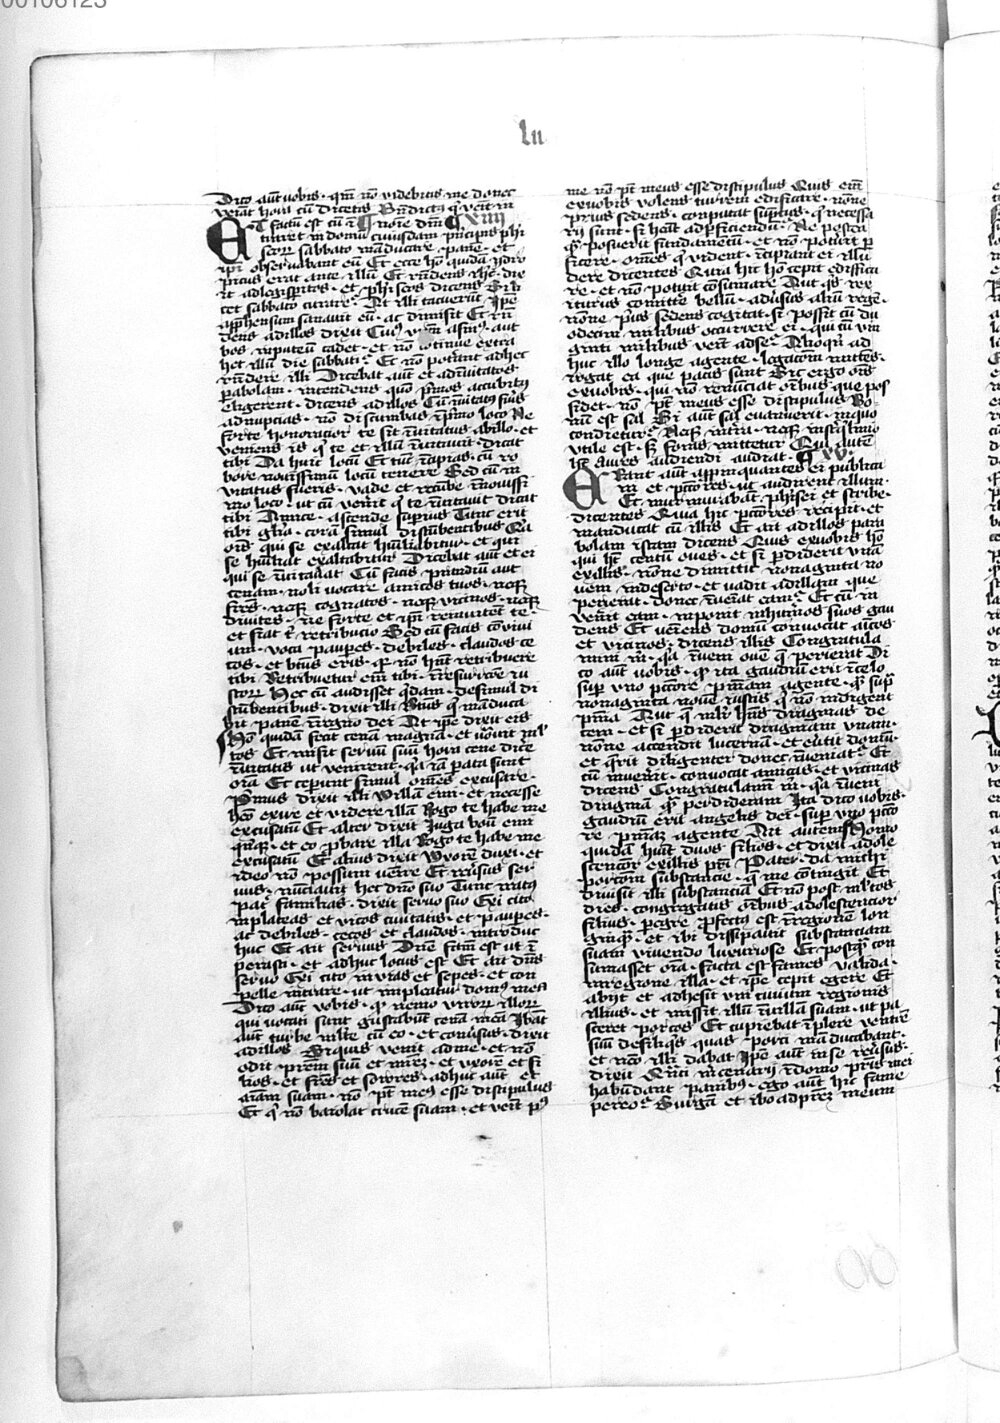 00106123
lu
Dico aūt vobis · qm̄ nō videbitis me donec
veīat hora cū dicetis Bn̄dictꝰ q̄ veīt in
Et factū est cū ī noīe dm̄ xiiii
traret in domū cuiusdam prīcipis phī
seorꝝ sabbato manducare · panē · et
ip̄i observabant eū Et ecce hō quidā ydro
picus erat ante illū Et rn̄dens ihc̄ · dix
it ad legisp̄itos · et phīseos dicens Si li
cet sabbato curare ͛ At illi tacuerūt Ip̄e
app̄hensum sanavit eū · ac dimisit Et rn̄
dens ad illos dixit Cuiꝰ vr̄m asinꝰ · aut
bos in puteū cadet · et nō ↄtinue extra
het illū die sabbati ͛ Et nō poterāt ad hec
rn̄dere illi Dicebat aūt et ad īvitatos
parabolam · intendens quō prīmos accubitꝰ
eligerent · dicens ad illos Cū īvitatꝰ fūis
ad nuptias · nō discumbas ī prīmo loco Ne
forte honoratior te sit īvitatus ab illo · et
veniens is q̄ te et illū īvitavit · dicat
tibi Da huic locū Et tūc īcipias · cū ru
bore novissimū locū tenere Sed cū in
vitatus fueris · vade et recūbe ī novissi
mo loco · ut cū venerit q̄ te īvitavit dicat
tibi Amice · ascende sup̄ius Tunc erit
tibi glīa · corā simul discūbentibus Qīa
om̄s qui se exaltat humiliabitur · et qui
se hūiliat exaltabitur Dicebat aūt et ei
qui se īvitaāat Cū facis prandiū aut
cenam · noli vocare amicos tuos · neqꝫ
frēs · neqꝫ cognatos · neqꝫ vicinos · neqꝫ
divites · ne forte et ip̄i reinvitent te ·
et fiat t̄ retribucio Sed cū facis convivi
um · voca paup̄es · debiles · claudos ce
cos · et btūs eris · qr̄ nō hn̄t retribuere
tibi Retribuetur eīm tibi · ī resurrc̄ōe iu
storꝝ Hec cū audisset q̄dam · de simul di
scūbentibus · dixit illi Btūs q̄ māduca
bit panē ī regno dei At ip̄e dixit eis
Hō quidā fecit cenā magnā · et vōavit ml̄
tos Et misit servū suū hora cene dice
īvitatis ut venirent · qīa iā pata sunt
oīa Et cep̄unt simul omēs excusare ·
Prīmus dixit illi Villā emi · et necesse
hēo exire et videre illā Rogo te habe me
excusatū Et alter dixit Iuga boū emi
qn̄qꝫ · et eo ꝓbare illa Rogo te habe me
excusatū Et alius dixit Uxorē duxi · et
ideo nō possum venīre Et rēvsus ser
vus · nūciavit hec dn̄o suo Tunc iratꝰ
pat̄ familias · dixit servo suo Exi cito
in plateas et vicos civitatis · et paup̄es ·
ac debiles · cecos et claudos · introduc
huc Et ait servus Dn̄e factū est ut ī
perasti · et adhuc locus est Et ait dn̄s
servo Exi cito in vias et sepes · et con
pelle intrare · ut impleatur domꝰ mea
Dico aūt vobis · qꝫ nemo virorꝝ illorꝝ
qui vocati sunt gustabūt cenā meā Ibāt
aūt turbe ml̄te cū eo · et conūsus · dixit
ad illos Si quis venit ad me · et nō
odit pr̄em suū et mr̄eꝫ · et uxorē et fi
lios · et frēs et sorores · adhuc aūt et
aīam suam · nō p̄t meꝰ esse discipulus
Et q̄ nō baiolat crucē suam · et venīt pꝰ
me nō p̄t meus esse discipulus Quis eīm
ex vobis volens turrem edificare · nōne
prīus sedens · conputat sūptus · q̄ necessa
rii sunt · si hēat ad ꝑficiendū ͛ Ne postea
qꝫ posuerit fundamētū · et nō potuerit ꝑ
ficere · omēs q̄ vident · īcipiant et illu
dere dicentes Quia hic hō cepit edifica
re · et nō potuit cōsumare Aut qs rex
iturus comitte bellū · adūsus aliū regē ·
nōne prīus sedens cogitat · si possit cū du
odecim milibus occurrere ei · qui cū vin
ginti milibus venīt ad se ͛ Alioqīn ad
huc illo longe agente · legacōm mittes ·
rogat ea que pacis sunt Sic ergo om̄s
ex vobis · qui nō renunciat om̄ibus que pos
sidet · nō p̄t meus esse discipulus Bo
nū est sal Si aūt sal evanuerit · in quo
condietur ͛ Neqꝫ in terra · neqꝫ in st̄quilinio
utile est · sꝫ foras mittetur Qui autē
hēt aures audiendi audiat · xv ·
Erant aūt appīnquantes ei publica
ni et pctōres · ut audirent illum ·
Et murmurabāt · phīsei et scribe ·
dicentes Quia hic pctōres recipit · et
manducat cū illis Et ait ad illos para
bolam īstam dicens Quis ex vobis hō
qui hēt centū oves · et si ꝑdiderit unā
ex illis · nōne dimittit nonaginta no
vem in deserto · et vadit ad illam que
perierat · donec īveīat eam ͛ Et cū in
venīt eam · inponit in hūeros suos gau
dens Et venīens domū convocat aīcos
et vicinos · dicens illis Congratula
mini m̄ · qīa īveni ovē q̄ perierat Di
co aūt vobis · qꝫ ita gaudiū erit ī celo
sup̄ uno pctōre · pnīam agente · qꝫ sup̄
nonaginta novē iustis q̄ nō indigent
pnīa Aut q̄ mlīr hn̄s dragmas de
cem · et si ꝑdiderit dragmam unam ·
nōne accendit lucernā · et eūtit domū ·
et qrīt diligenter donec īveniat ͛ Et
cū invenerit · convocat amicas · et vicinas
dicens Congratulaminī m̄ · qīa īveni
dragmā qꝫ perdideram Ita dico vobis ·
gaudiū erit angelis dei · sup̄ uno pctō
re pnīaꝫ agente Ait autem Homo
quidā hūit duos filios · et dixit adole
scencior ex illis pr̄i Pater · da michi
porcōem substancie · q̄ me cōtingit Et
divisit illi substanciā Et nō post ml̄tos
dies · congregatis om̄ibus adolescencior
filius · peg̅re ꝓfectꝰ est ī regionē lon
ginqꝫ · et ibi dissipavit substanciam
suam vivendo luxuriose Et postqꝫ con
sumasset oīa · facta est fames valida ·
in regione illa · et ip̄e cepit egere Et
abiit et adhesit uni civium regionis
illius · et misit illū ī villā suam · ut pa
sceret porcos Et cupiebat īplere ventrē
suū de siliqs quas porci māducabant ·
et nēo illi dabat Ip̄e aūt in se reūsus ·
dixit Qn̄ti mcēnarii ī domo prīs mei
habūdant panibꝰ · ego aūt hic fame
pereo ͛ Surgā et ibo ad pr̄eꝫ meum